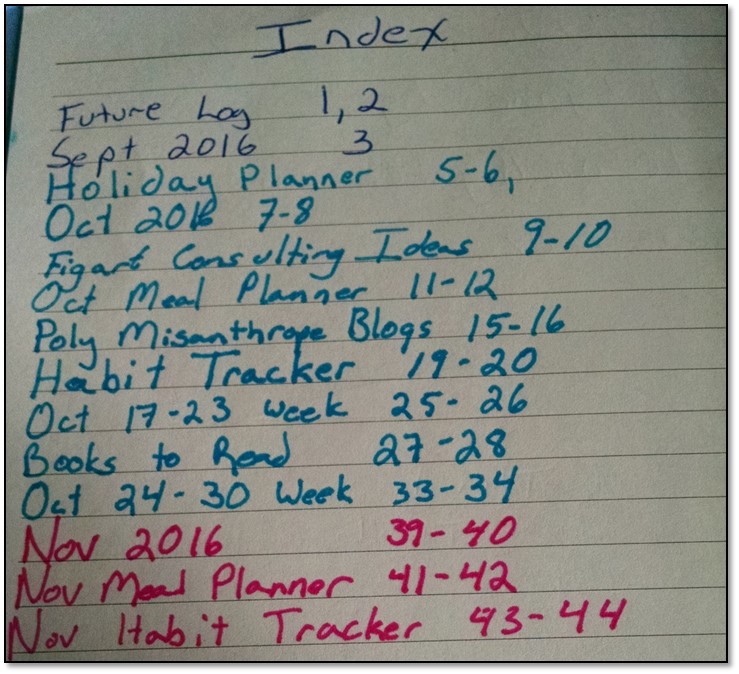 Index
Future Log 1, 2
Sept 2016 3
Holiday Planner 5-6,
Oct 2016 7-8
Figart Consulting Ideas 9-10
Oct Meal Planner 11-12
Poly Misanthrope Blogs 15-16
Habit Tracker 19-20
Oct 17-23 week 25-26
Books to Read 27-28
Oct 24-30 Week 33-34
Nov 2016 39-40
Nov Meal Planner 41-42
Nov Habit Tracker 43-44